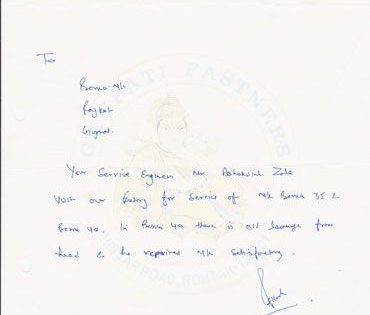 To
Borna M/c
Rajkot
Gujrat.
Your Service Engineer Mr Ashokvial Zala
Visit our factory for Service of M/c Borna 35 &
Borna 40. In Borna 40 there is oil leakage from
head & he repaired M/c satisfactory.
GANPATI FASTNERS
ROAD ROHTAK